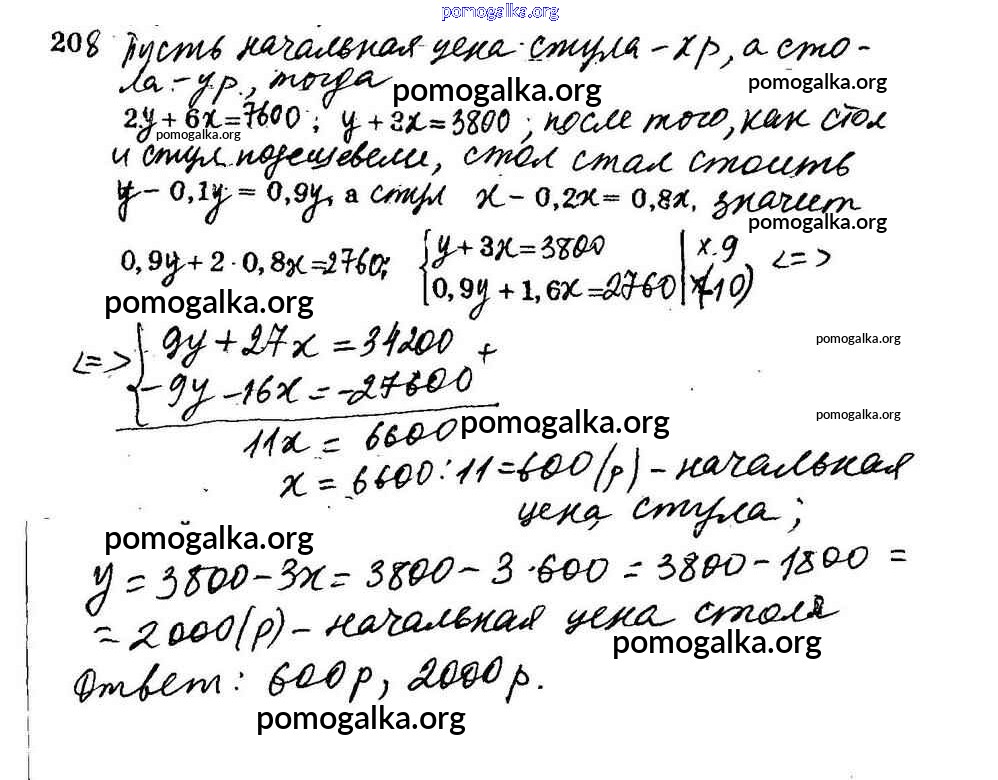 pomogalka.org
208 Пусть начальная цена стула - x р, а сто-
ла - y р., тогда
pomogalka.org
pomogalka.org
2y + 6x = 7600; y + 3x = 3800; после того, как стол
pomogalka.org
и стул подешевели, стол стал стоить
y - 0,1y = 0,9y, а стул x - 0,2x = 0,8x, значит
pomogalka.org
0,9y + 2 · 0,8x = 2760; { y + 3x = 3800 | x 9
{ 0,9y + 1,6x = 2760 | x (-10) <=>
pomogalka.org
<=> { 9y + 27x = 34200 +
pomogalka.org
{ -9y - 16x = -27600
pomogalka.org
pomogalka.org
11x = 6600
x = 6600 : 11 = 600 (р) - начальная
цена стула;
pomogalka.org
y = 3800 - 3x = 3800 - 3 · 600 = 3800 - 1800 =
= 2000 (р) - начальная цена стола
pomogalka.org
Ответ: 600 р, 2000 р.
pomogalka.org